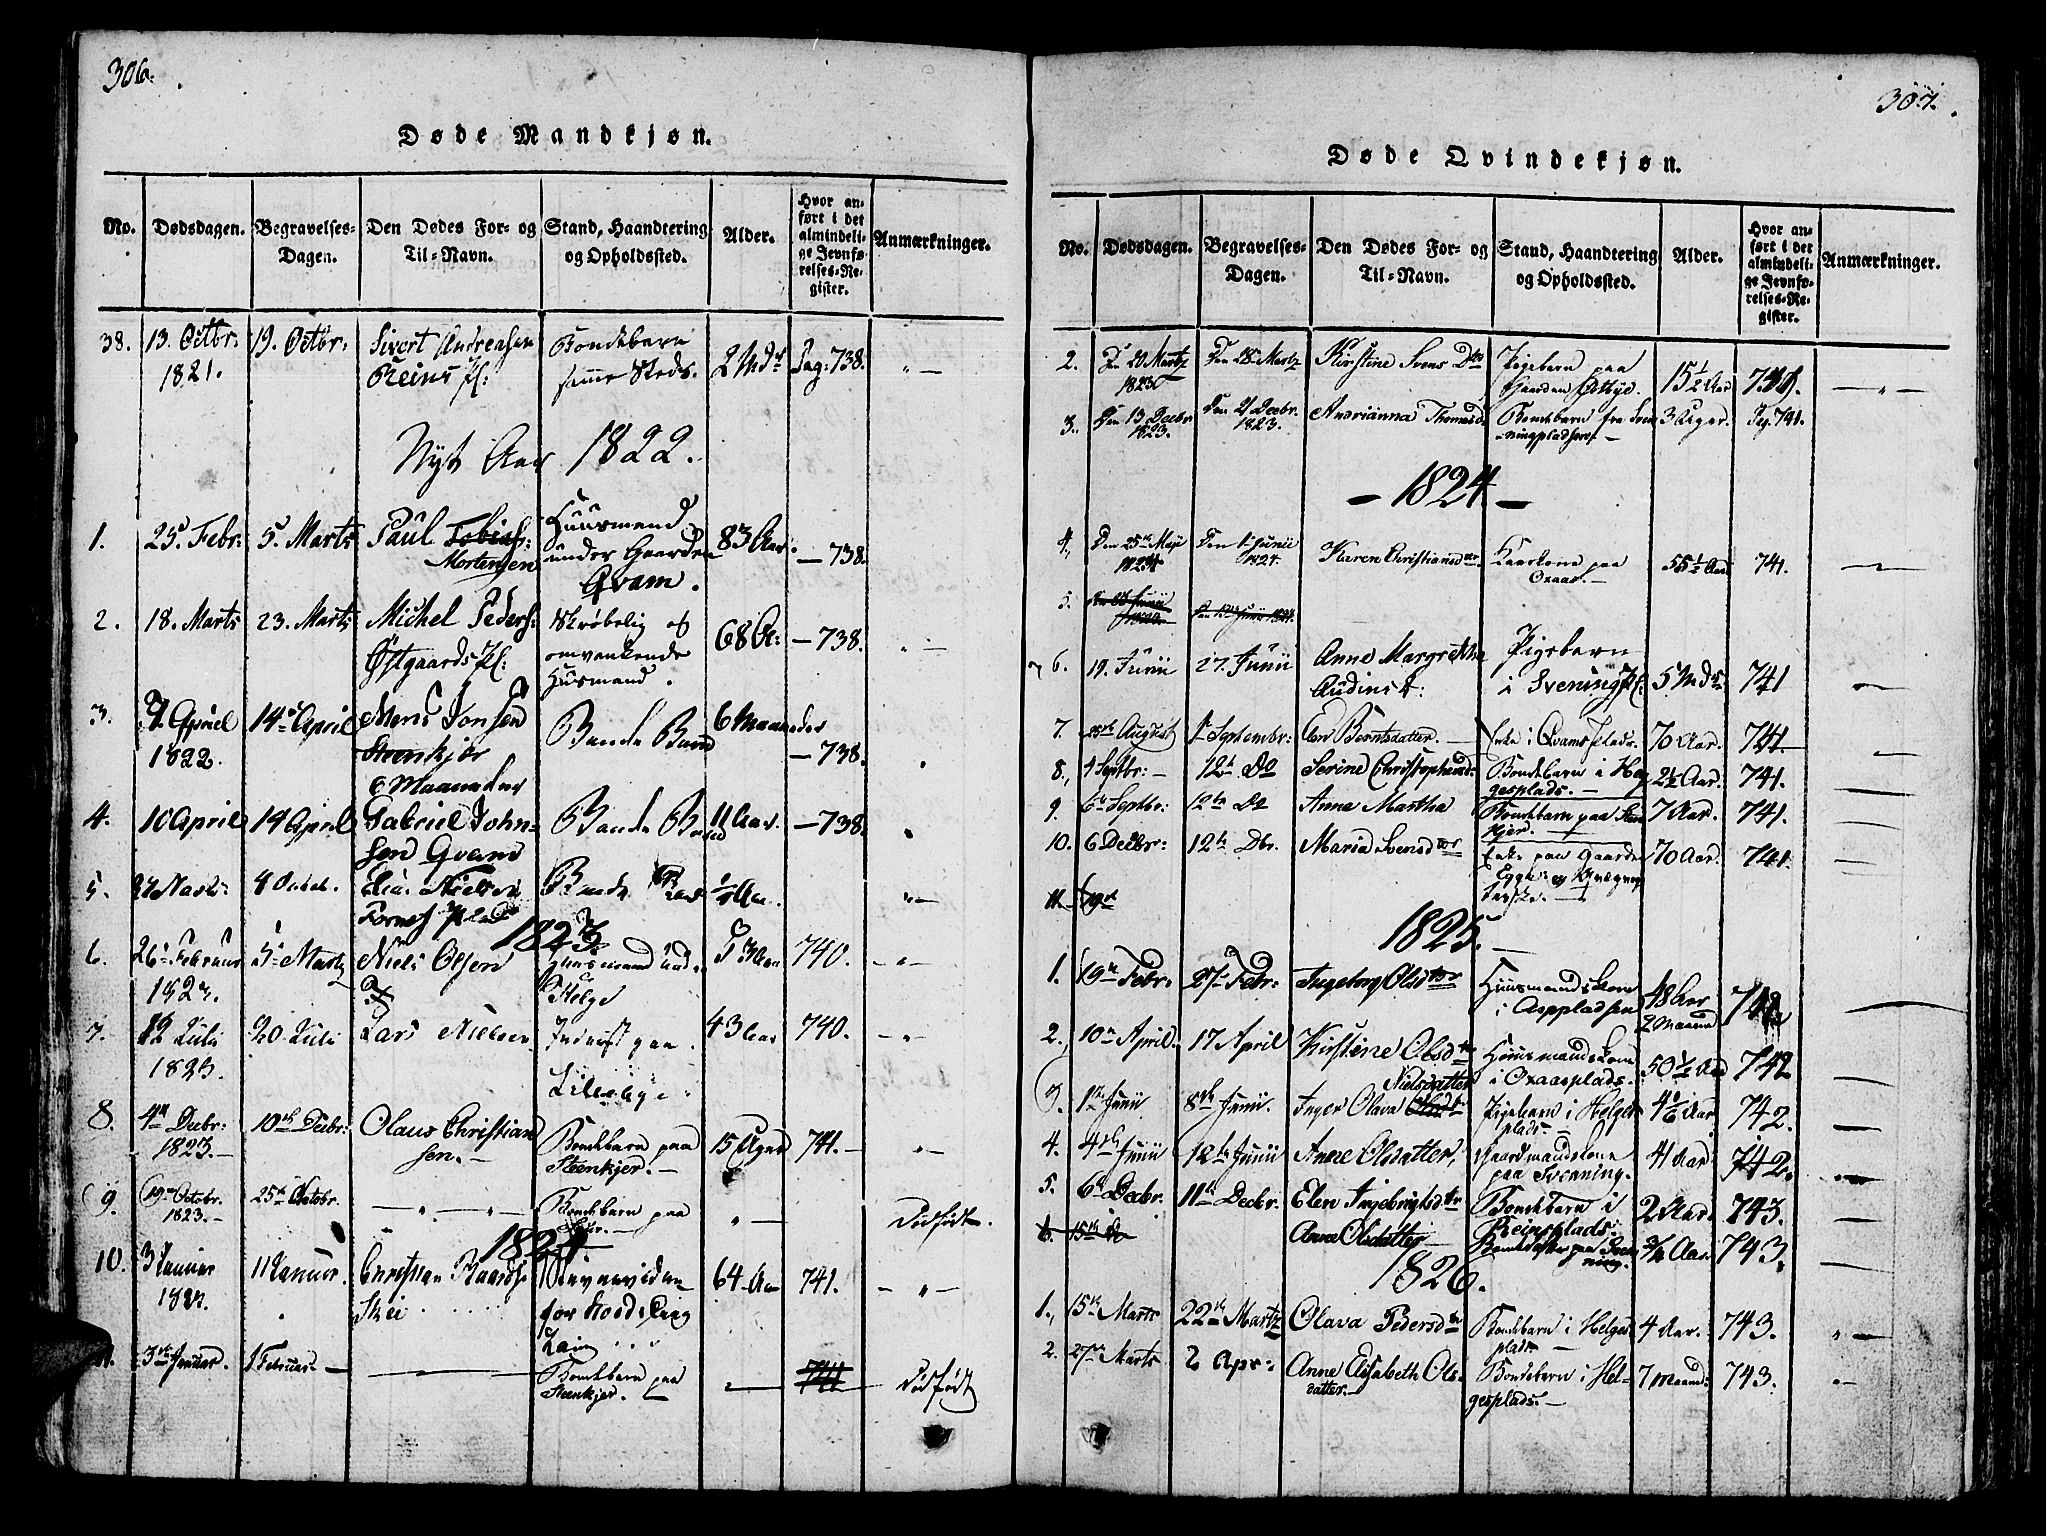 306.
Døde Mandkjøn.
No. Dødsdagen. Begravelses-Dagen. Den Dødes For- og Til-Navn. Stand, Haandtering og Opholdssted. Alder. Hvor anført i det almindelige Jevnførelses-Register. Anmærkninger.
38. 13. Octbr: 19. Octbr: Sivert Andreasen Bondebarn 2 Mdr Pag: 738.
1821. Reins Pl: samme Steds.
Nyt Aar 1822.
1. 25. Febr. 5. Marts Paul Tobias: Huusmand 83 Aar. — 738.
Mortensen under Gaarden
Qvam.
2. 18. Marts 23. Marts Michel Peders: Skrøbelig og 68 A: — 738.
Østgaards Pl: omvankende
Husmand.
3. 7 April 14 April Mens Jonsen Bonde Barn 6 Maaneder
1822. Steenkjer — 738.
6 Maaneder
4. 10 April 19 April Gabriel John- Bonde Barn 11 Aar. — 738.
sen Qvam
5. Nielsen Bonde ½ Aar
Plads
1823
6. 26 Februar 5 Marts Niels Olsen Huusmand 740.
1823. Helge
7. 12 Juli 20 Juli Lars Nielsen Inderst paa 43 Aar 740.
1823. Lillebye
8. 4de Decbr: 10de Decbr: Olaus Christian Bondebarn paa 15 Uger 741.
1823. sen. Steenkjer.
9. 19 Octobr. 25de Octobr. Bondebarn paa Dødfødt.
1823.
1824
10. 3 Januar 11 Januar. Christian 64 Aar 741.
1824. Skei for
11. 3 Januar. 1 Februar Bondebarn paa 741 Dødfødt
Steenkjer.
307.
Døde Qvindekjøn.
No. Dødsdagen. Begravelses-Dagen. Den Dødes For- og Til-Navn. Stand, Haandtering og Opholdssted. Alder. Hvor anført i det almindelige Jevnførelses-Register. Anmærkninger.
2. Den 20 Martz Den 28 Martz Kirstine Svens Dtr Pigebarn paa 15½ Aar
1823. Gaarden
3. Den 13 Decbr. Den 21 Decbr. Andrianna Thomasd. Bondebarn fra Sven 3 Uger. Pg. 741.
1823. 1823. ningpladsen
— 1824 —
4. Den 25de Maji Den 1 Junii Karen Christiansdtr. Kaarkone paa 55½ Aar 741.
1824 1824. Oxaas.
5.
6. 19. Junii 27. Junii Anne Margretha Pigebarn 5 Mdr 741
Audins d: i Svening Pl:
7. August 1 Septembr: Elen Berntsdatter. Enke i Qvams Plads. 70 Aar. 741.
8. 4 Septbr: 12te Do Serine Christophersd: Bondebarn i Hel 2½ Aar. 741.
gesplads.
9. 6te Septbr: 12te Do Anne Martha Bondebarn paa Steen 7 Aar. 741.
kjer.
10. 6 Decbr: 12te Dbr. Maria Svensdtr Enke paa Gaarden 70 Aar. 741.
Egge
11. 19de
1825.
1. 19de Febr: 27 Febr: Ingeborg Olsdtr Huusmandskone 48 Aar 742
i Aspladsen 2 Maaned
2. 10 April. 17 April Kirstine Olsdtr Huusmandskone 50½ Aar 742
i Oxaasplads.
Nielsdatter
3. 1te Junii 8de Junii. Inger Olava Olsdtr Pigebarn i Helges 742.
plads.
4. 4de Junii 12te Junii Anne Olsdatter, Gaardmandskone 41 Aar 742.
paa Svenning.
5. 6 Decbr. 11te Decbr. Elen Ingebrigtsdtr Bondebarn i 2 Aar. 743.
Reinsplads.
6. 15de Anne Olsdatter paa Sven 743.
ning.
1826.
1. 15de Marts 22de Martz Olava Pedersdtr Bondebarn i Helges 4 Aar. 743.
plads
2. 27de Marts 2 Apr: Anne Elisabeth Ols- Bondebarn i Hel- 7 Maand: 743.
datter. gesplads.